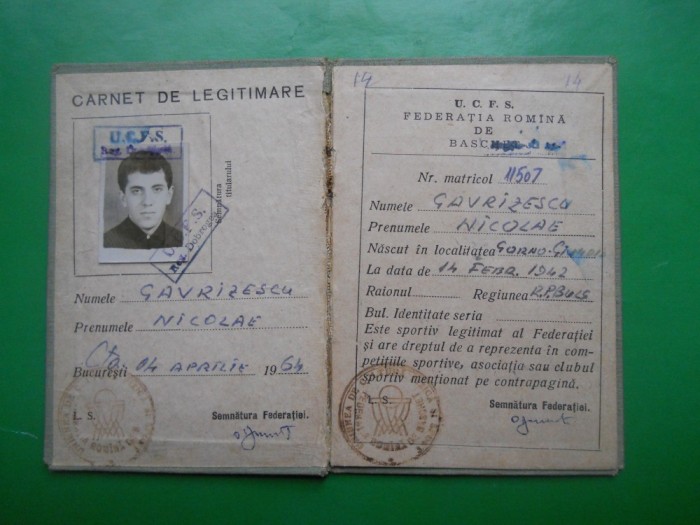 CARNET DE LEGITIMARE
U.C.F.S.
Semnătura
titularului
U.C.F.S.
Reg. Dobrogea
Numele GAVRIZESCU
Prenumele NICOLAE
București 04 APRILIE 1964
L. S. Semnătura Federației.
14 14
U. C. F. S.
FEDERAȚIA ROMÎNĂ
DE
BASC
Nr. matricol 11507
Numele GAVRIZESCU
Prenumele NICOLAE
Născut în localitatea GORNO-
La data de 14 FEBR. 1942
Raionul Regiunea R.P.BULG
Bul. Identitate seria
Este sportiv legitimat al Federației
și are dreptul de a reprezenta în com-
petițiile sportive, asociația sau clubul
sportiv menționat pe contrapagină.
L. S. Semnătura Federației.